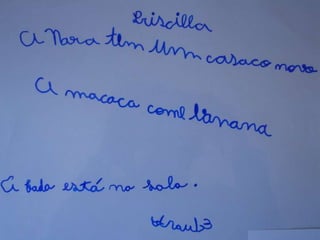 Priscilla
A Nara tem Umm casaco novo
A macaca come banana
A fada está na sala.